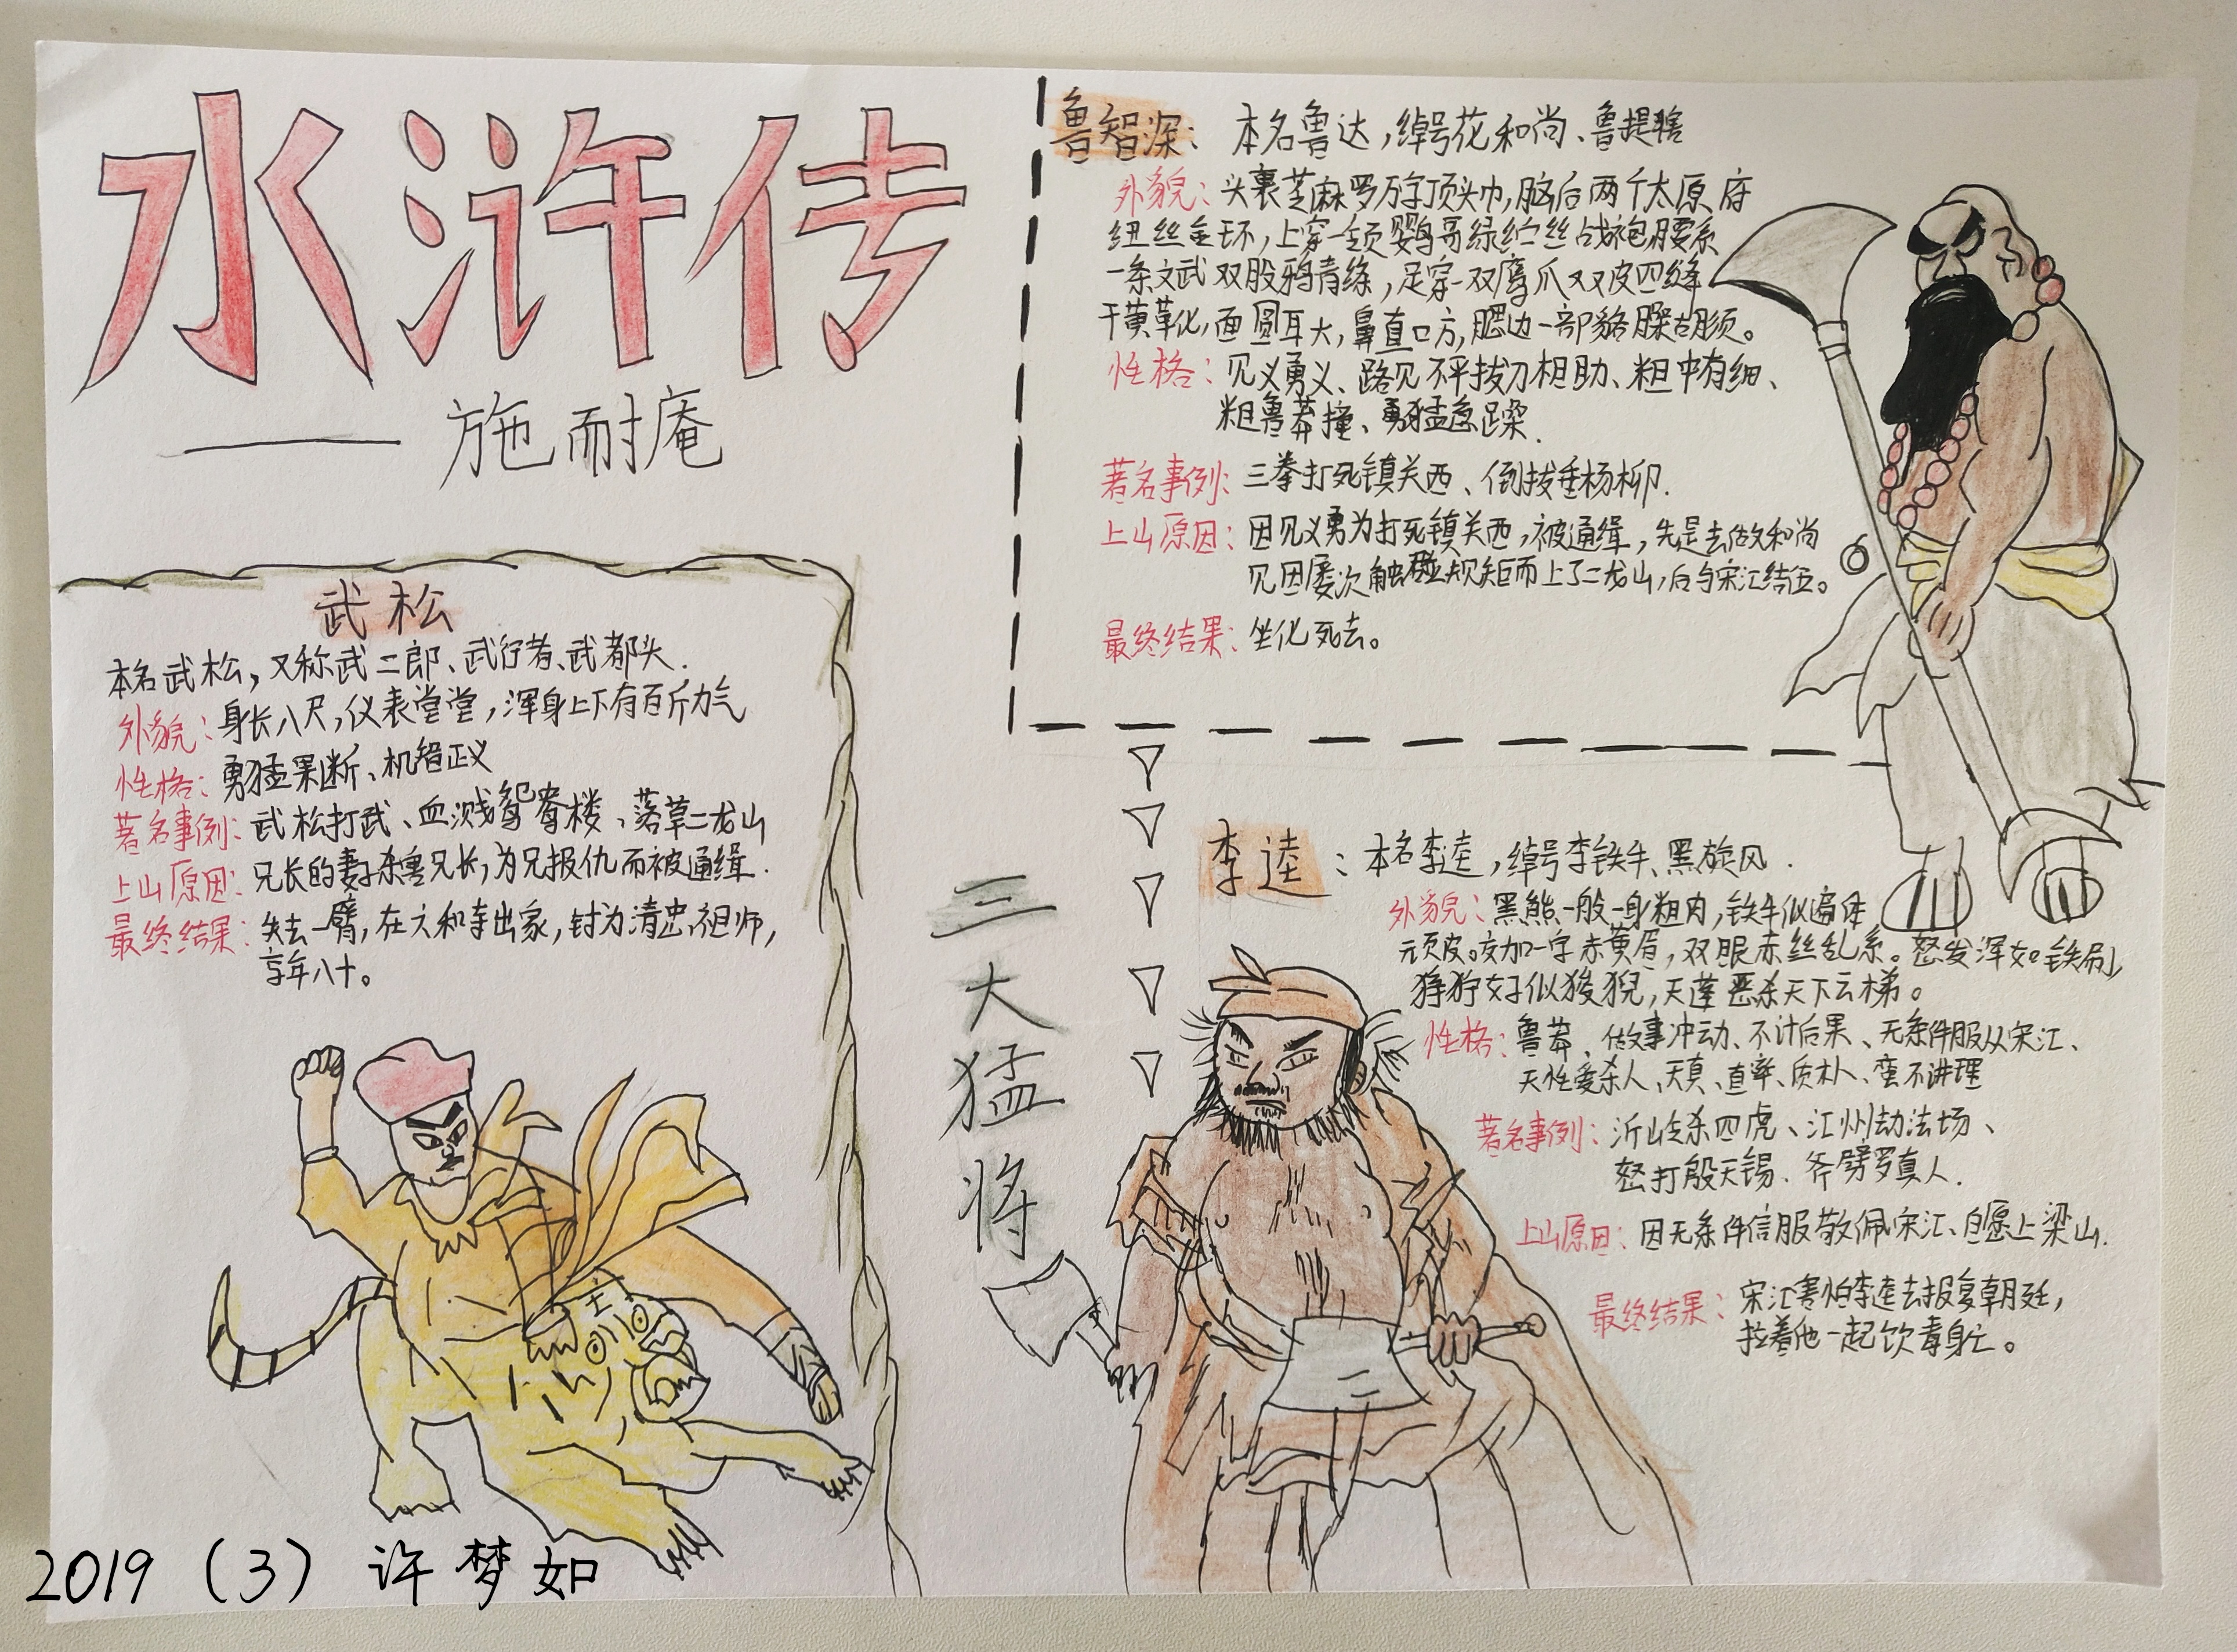 水浒传
——施耐庵
鲁智深：本名鲁达，绰号花和尚、鲁提辖
外貌：头裹芝麻罗万字顶头巾，脑后两个太原府
纽丝金环，上穿一领鹦哥绿纻丝战袍，腰系
一条文武双股鸦青绦，足穿一双鹰爪皮四缝
干黄草化，面圆耳大，鼻直口方，腮边一部貉臊胡须。
性格：见义勇义、路见不平拔刀相助、粗中有细、
粗鲁莽撞、勇猛急躁.
著名事例：三拳打死镇关西、倒拔垂杨柳.
上山原因：因见义勇为打死镇关西，被通缉，先是去做和尚
见因屡次触碰规矩而上了二龙山，后与宋江结伍。
最终结果：坐化死去。
武松
本名武松，又称武二郎、武行者、武都头.
外貌：身长八尺，仪表堂堂，浑身上下有百斤力气
性格：勇猛果断、机智正义
著名事例：武松打武、血溅鸳鸯楼、落草二龙山
上山原因：兄长的妻子杀害兄长，为兄报仇而被通缉.
最终结果：失去一臂，在六和寺出家，封为清忠祖师，
享年八十。
三大猛将
李逵：本名李逵，绰号李铁牛、黑旋风.
外貌：黑熊一般一身粗肉，铁牛似遍体
顽皮。交加一字赤黄眉，双眼赤丝乱系。怒发浑如铁刷，
狰狞好似狻猊，天蓬恶杀天下云梯。
性格：鲁莽、做事冲动、不计后果、无条件服从宋江、
天性爱杀人、天真、直率、质朴、蛮不讲理
著名事例：沂山岭杀四虎、江州劫法场、
怒打殷天锡、斧劈罗真人.
上山原因：因无条件信服敬佩宋江、自愿上梁山.
最终结果：宋江害怕李逵去报复朝廷，
拉着他一起饮毒身亡。
2019（3）许梦如